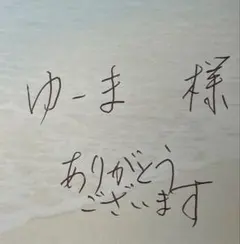 ゆーま 様
ありがとう
ございます